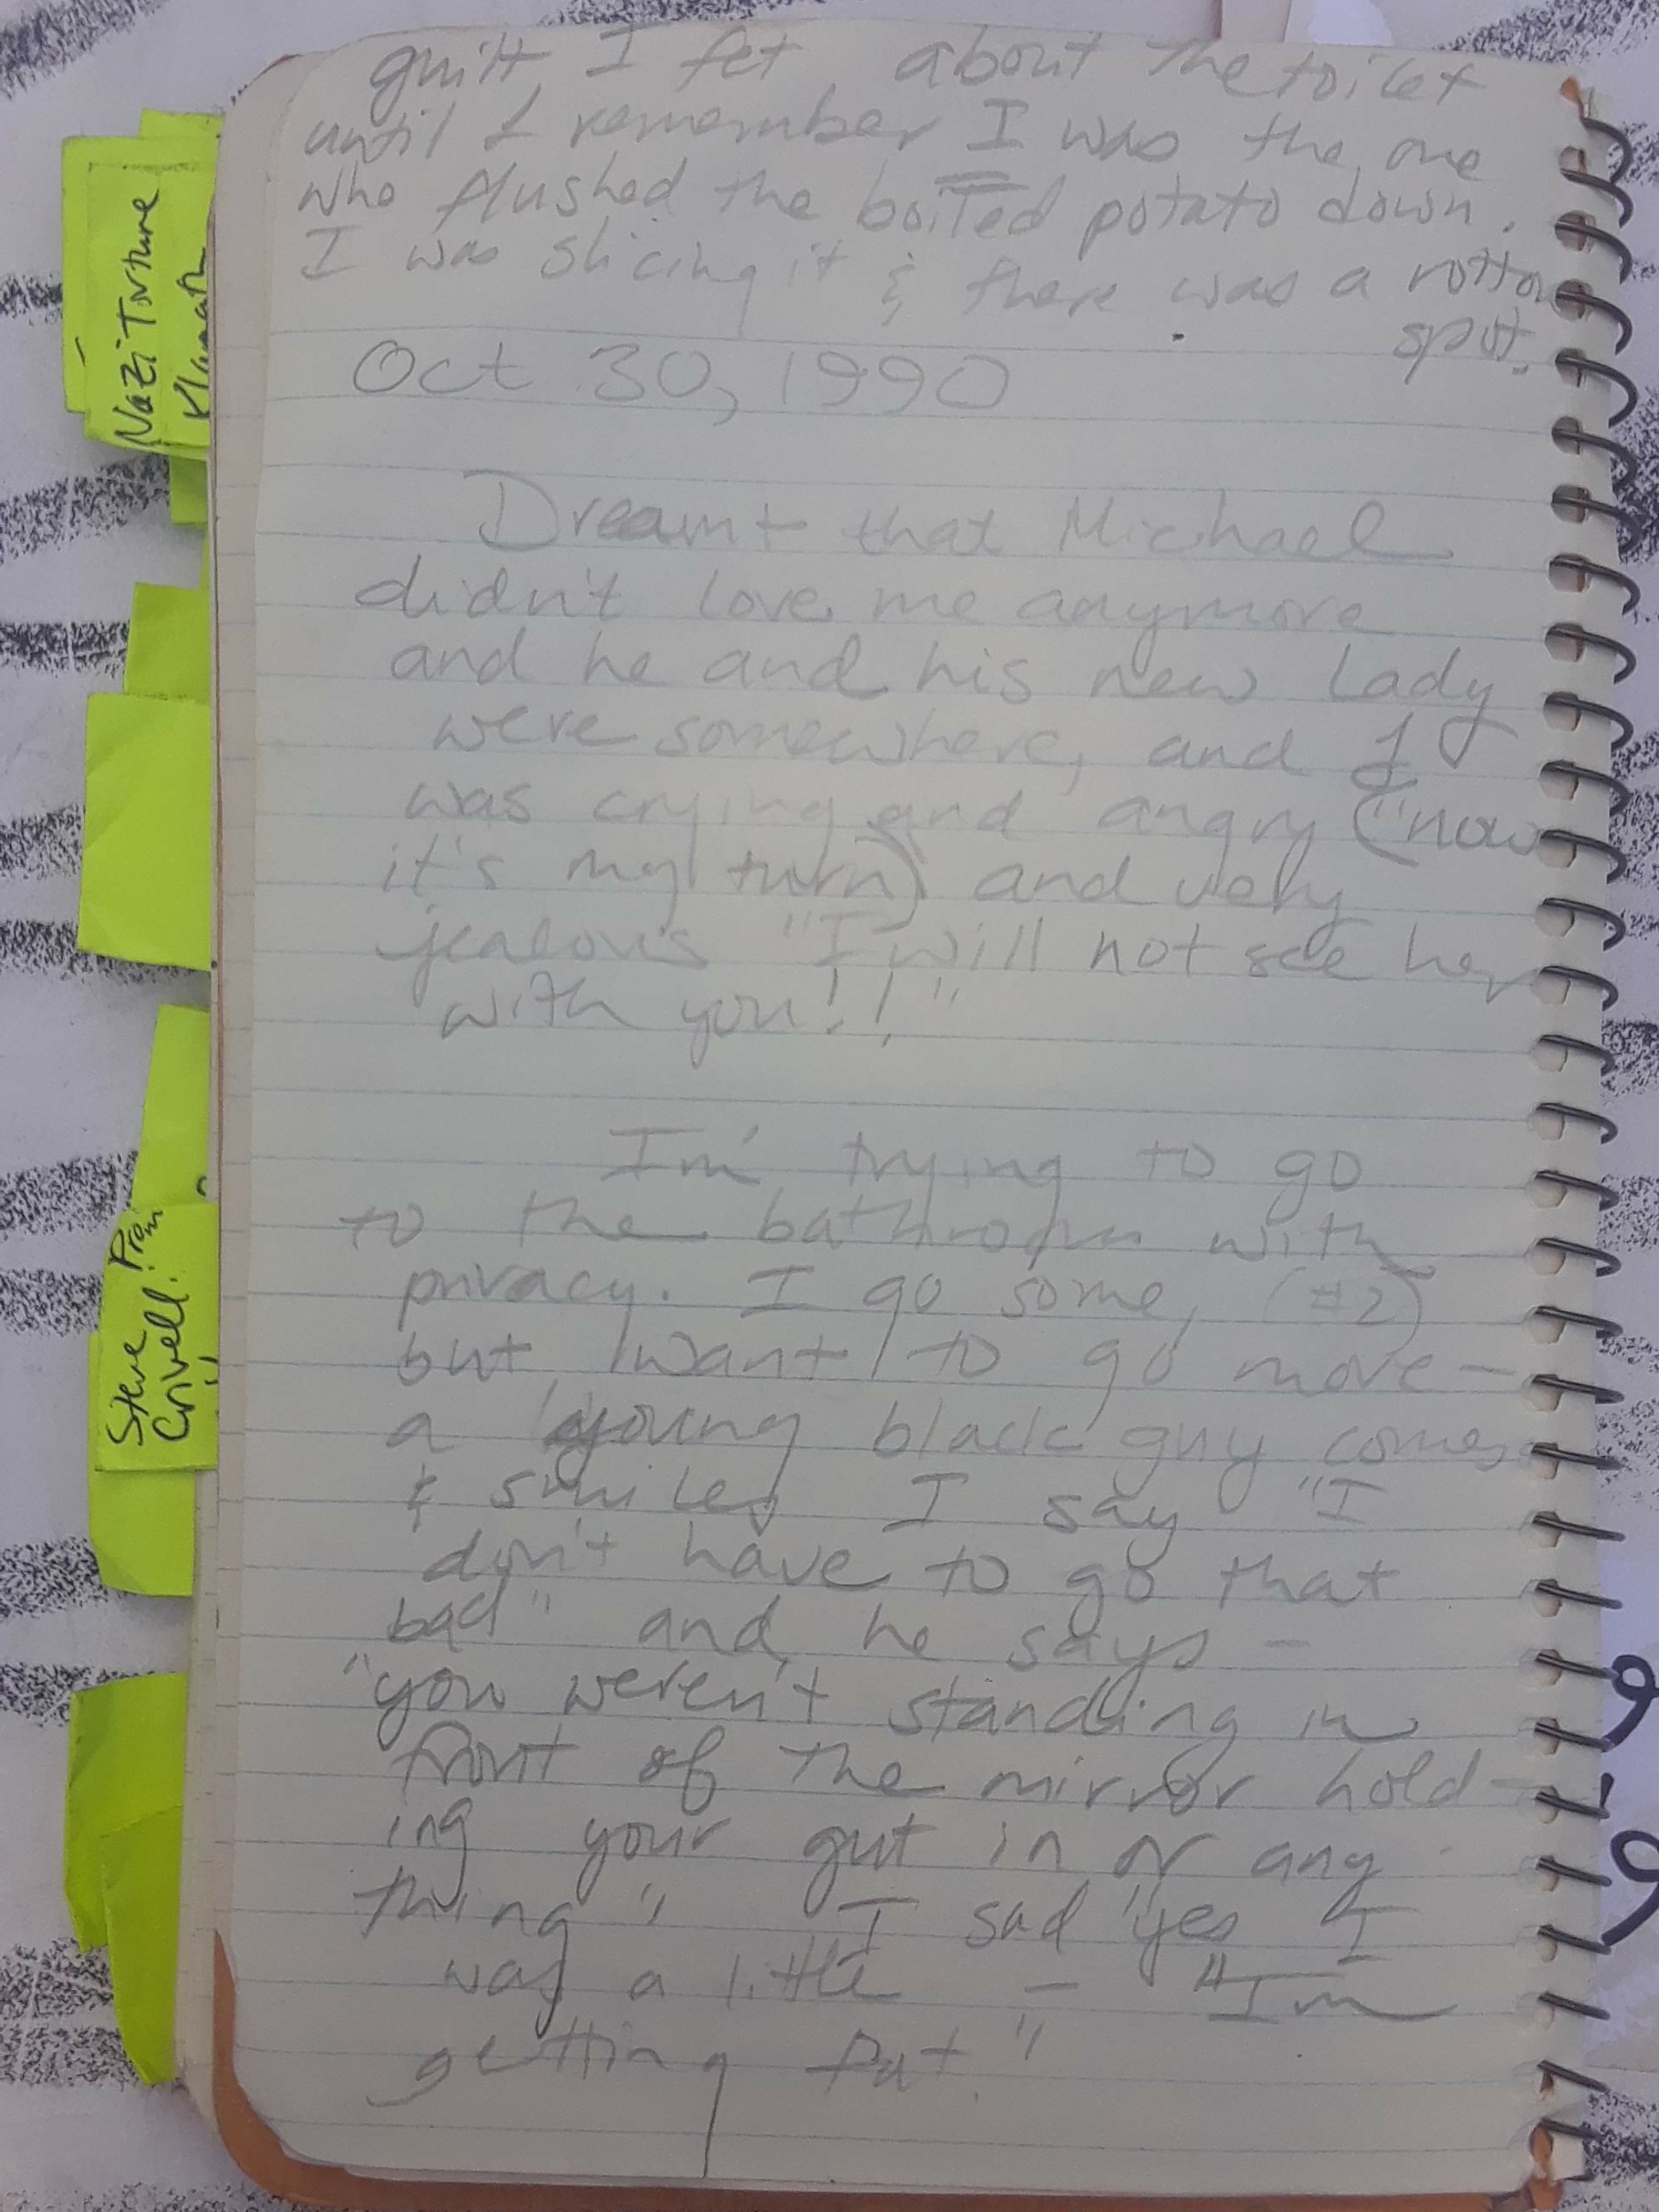 guilt I fet about the toilet
until I remember I was the one
who flushed the boiled potato down.
I was slicing it & there was a rotton
spot.
Oct 30, 1990
Dreamt that Michael
didn't love me anymore
and he and his new lady
were somewhere, and I
was crying and angry ("now
it's my turn) and very
jealous "I will not see her
with you!!"
Im' trying to go
to the bathroom with
privacy. I go some, (#2)
but want to go more -
a young black guy comes
& smiles I say "I
don't have to go that
bad" and he says -
"you weren't standing in
front of the mirror hold-
ing your gut in or any
thing" I sad "yes I
was a little - "Im
getting fat."
Nazi Torture
Steve
Crivell